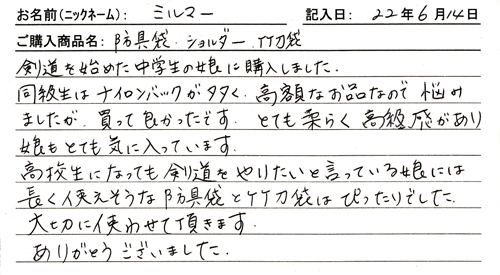 お名前(ニックネーム): ミルマー 記入日: 22年6月14日
ご購入商品名: 防具袋・ショルダー・竹刀袋
剣道を始めた中学生の娘に購入しました。
同級生はナイロンバックが多く、高額なお品なので悩み
ましたが、買って良かったです。とても柔らく高級感があり
娘もとても気に入っています。
高校生になっても剣道をやりたいと言っている娘には
長く使えそうな防具袋と竹刀袋はぴったりでした。
大切に使わせて頂きます。
ありがとうございました。